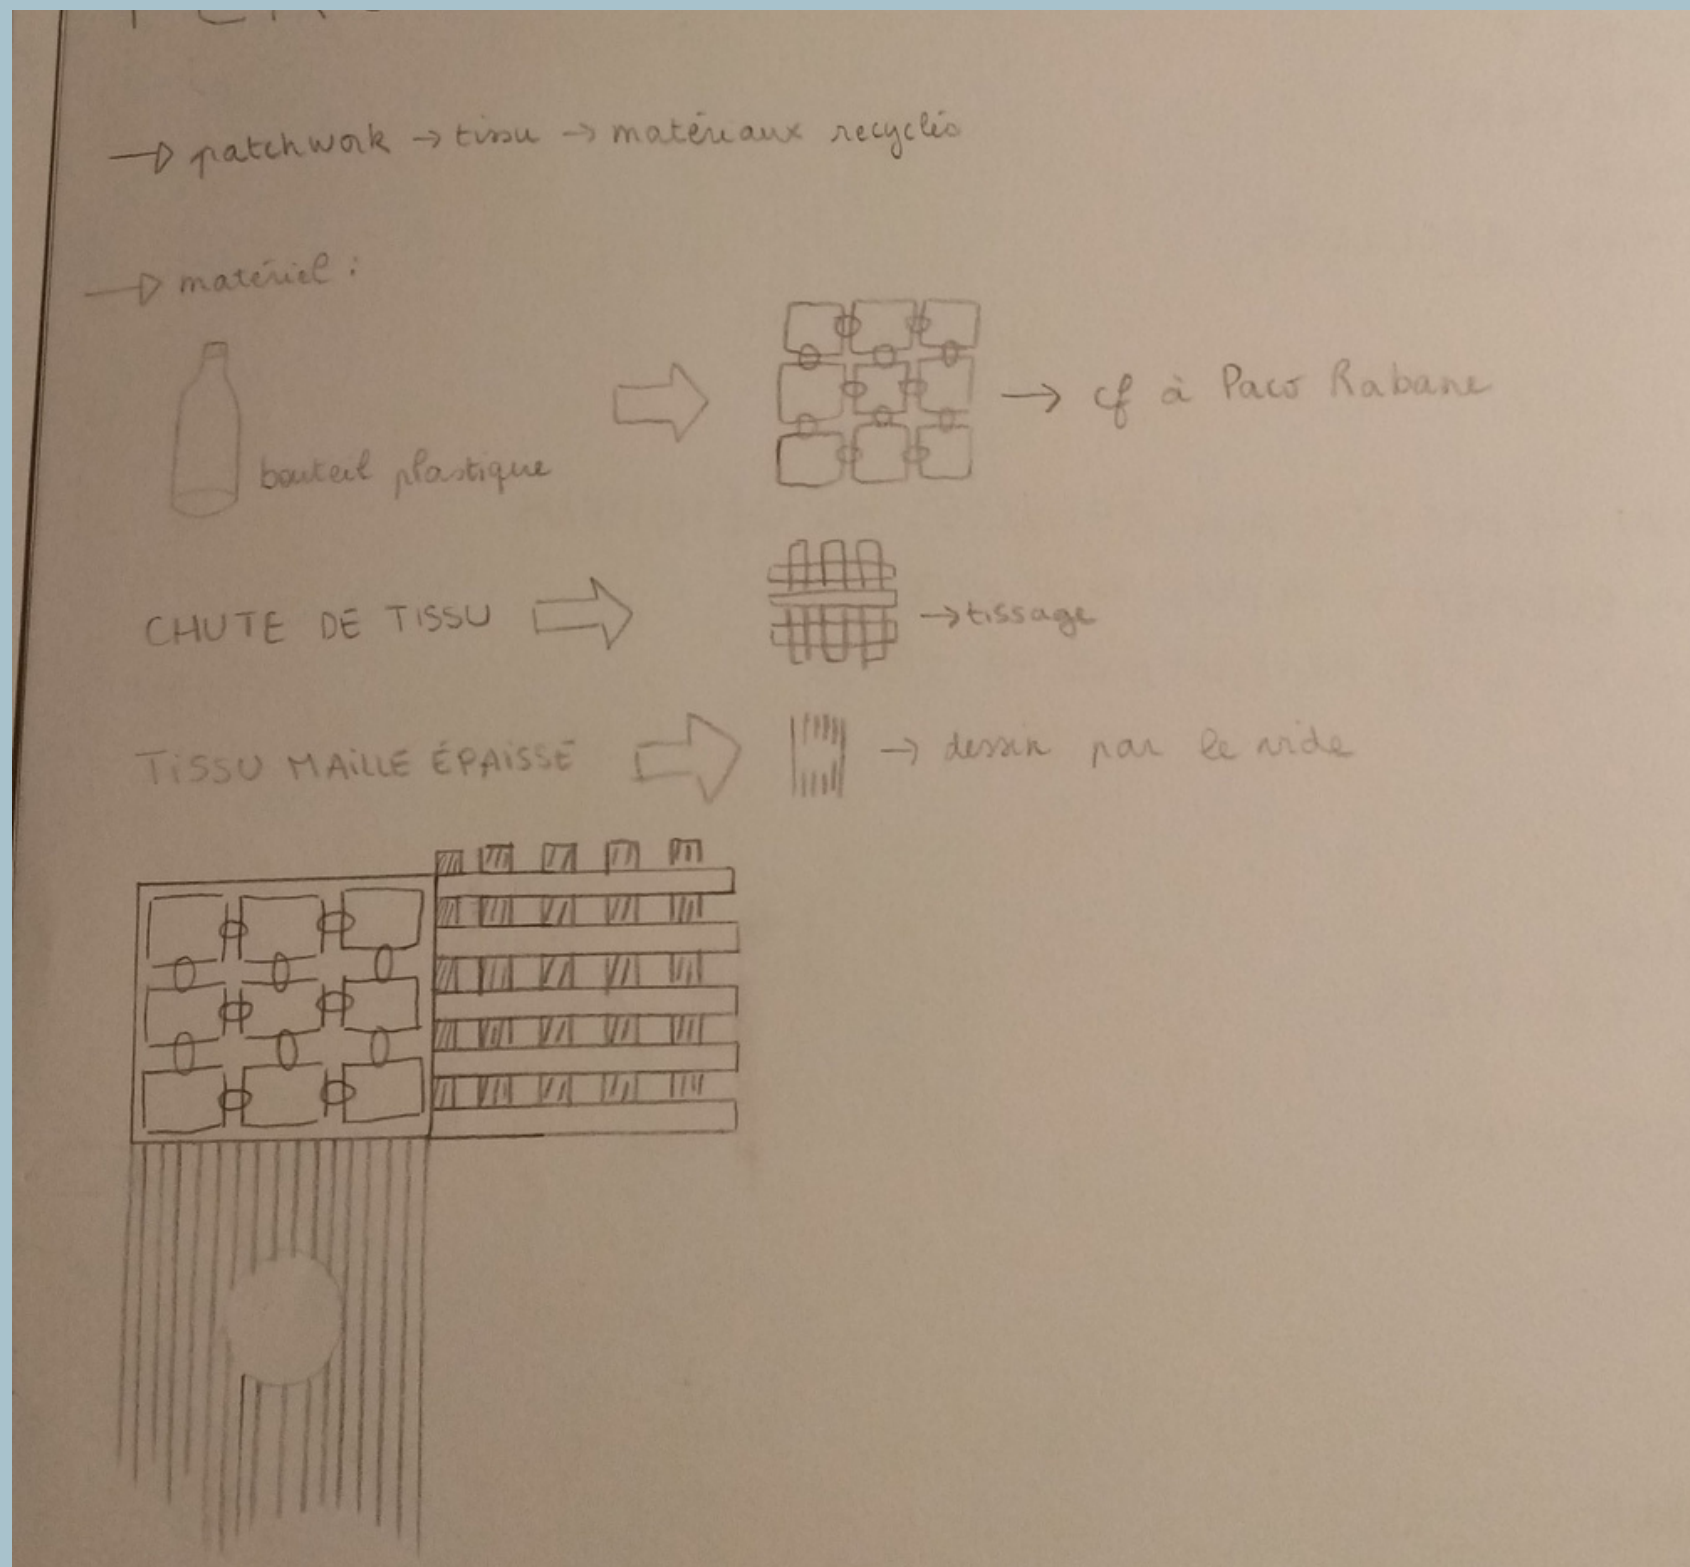 → patchwork → tissu → matériaux recyclés
→ matériel :
bouteil plastique
→ cf à Paco Rabane
CHUTE DE TISSU
→ tissage
TISSU MAILLE ÉPAISSE
→ dessin par le vide